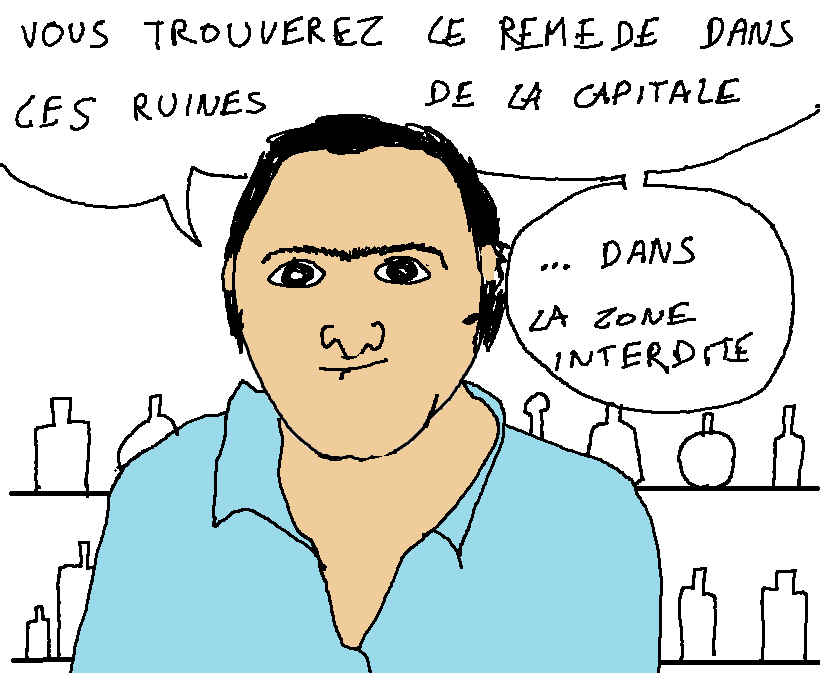 VOUS TROUVEREZ LE REMEDE DANS
LES RUINES DE LA CAPITALE
... DANS
LA ZONE
INTERDITE